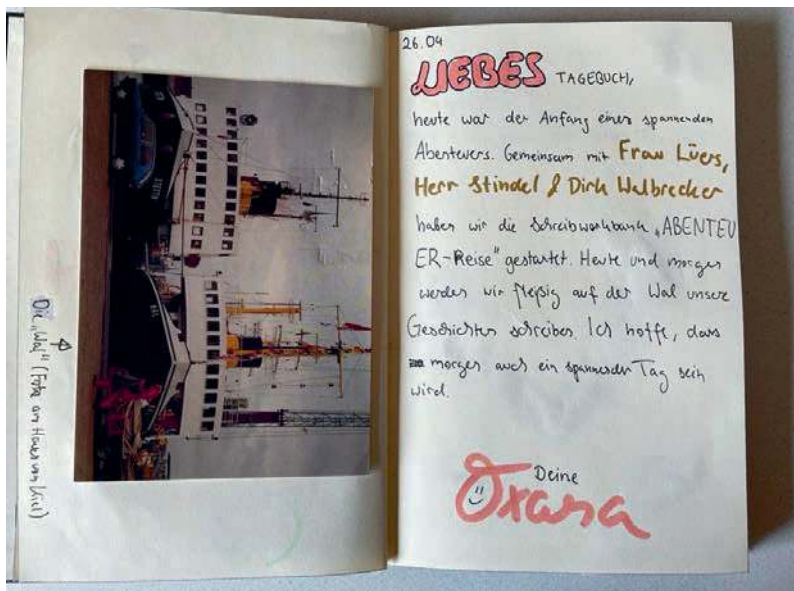 Die „Wal" (Foto am Hafen von Kiel)
WAL
26.04
LIEBES TAGEBUCH,
heute war der Anfang eines spannenden
Abenteuers. Gemeinsam mit Frau Lüers,
Herr Stindel & Dirk Walbrecker
haben wir die Schreibwerkbank „ABENTEU
ER-Reise" gestartet. Heute und morgen
werden wir fleißig auf der Wal unsere
Geschichten schreiben. Ich hoffe, dass
morgen auch ein spannender Tag sein
wird.
Deine
Oxana